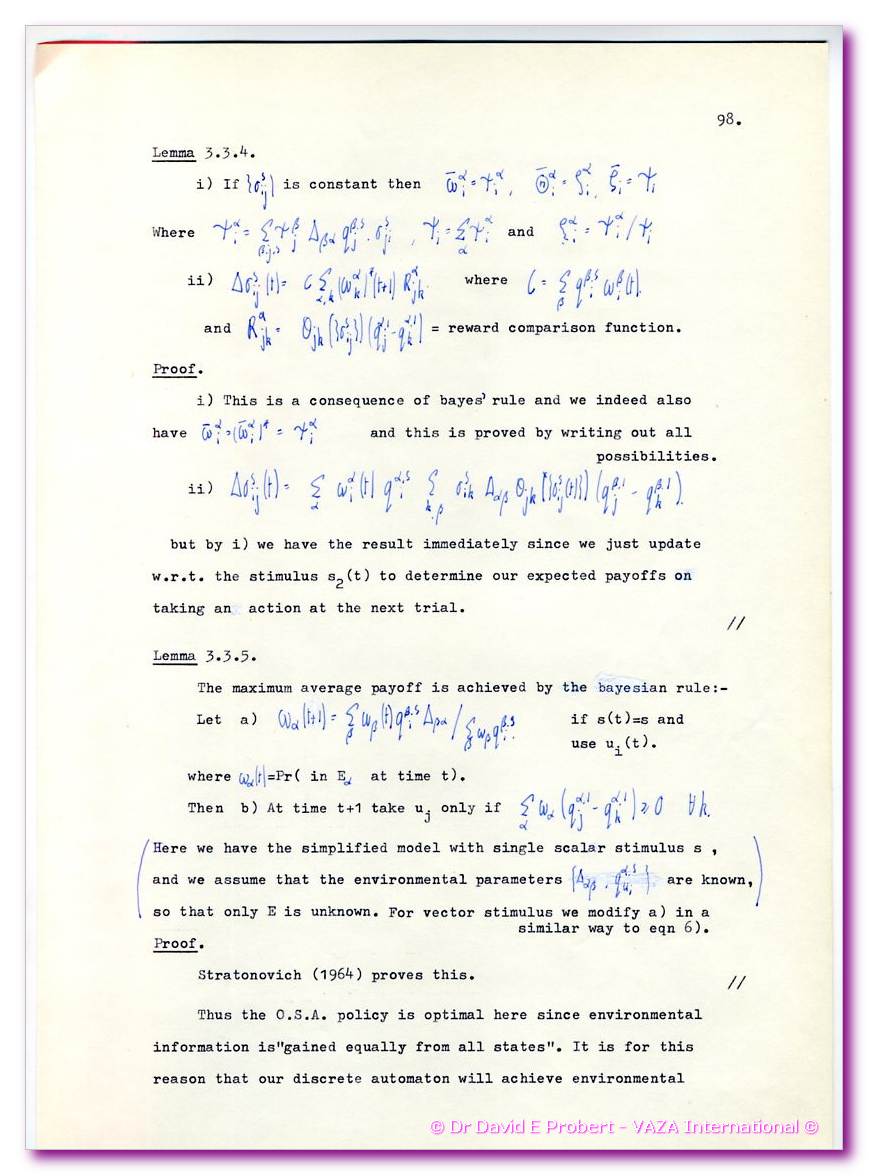 98.
Lemma 3.3.4.
i) If {σ^s_ij} is constant then ω̄^α_i = ψ^α_i,
Where ψ^α_i = Σ_β,j,s ψ^β_j Δ_βα q^β,s_j . σ^s_ji , ψ_i = Σ_α ψ^α_i and ξ^α_i = ψ^α_i / ψ_i
ii) Δσ^s_ij(t) = C Σ_α,k (ω^α_k)*(t+1) R^α_jk where C = Σ_β q^β,s_i ω^β_i(t).
and R^α_jk = θ_jk({σ^s_ij})(q^α,1_j - q^α,1_k) = reward comparison function.
Proof.
i) This is a consequence of bayes' rule and we indeed also
have ω̄^α_i = (ω̄^α_i)* = ψ^α_i and this is proved by writing out all
possibilities.
ii) Δσ^s_ij(t) = Σ_α ω^α_i(t) q^α,s_i Σ_k,β σ^s_ik Δ_αβ θ_jk[{σ^s_ij(t)}] (q^β,1_j - q^β,1_k).
but by i) we have the result immediately since we just update
w.r.t. the stimulus s_2(t) to determine our expected payoffs on
taking an action at the next trial.
//
Lemma 3.3.5.
The maximum average payoff is achieved by the bayesian rule:-
Let a) ω_α(t+1) = Σ_β ω_β(t) q^β,s_i Δ_βα / Σ_β ω_β q^β,s_i if s(t)=s and
use u_i(t).
where ω_α(t)=Pr( in E_α at time t).
Then b) At time t+1 take u_j only if Σ_α ω_α (q^α,1_j - q^α,1_k) ≥ 0 ∀k.
(Here we have the simplified model with single scalar stimulus s ,
and we assume that the environmental parameters {Δ_αβ, q^α,s_u_i} are known,
so that only E is unknown. For vector stimulus we modify a) in a
similar way to eqn 6).
Proof.
Stratonovich (1964) proves this.
//
Thus the O.S.A. policy is optimal here since environmental
information is"gained equally from all states". It is for this
reason that our discrete automaton will achieve environmental
© Dr David E Probert - VAZA International ©